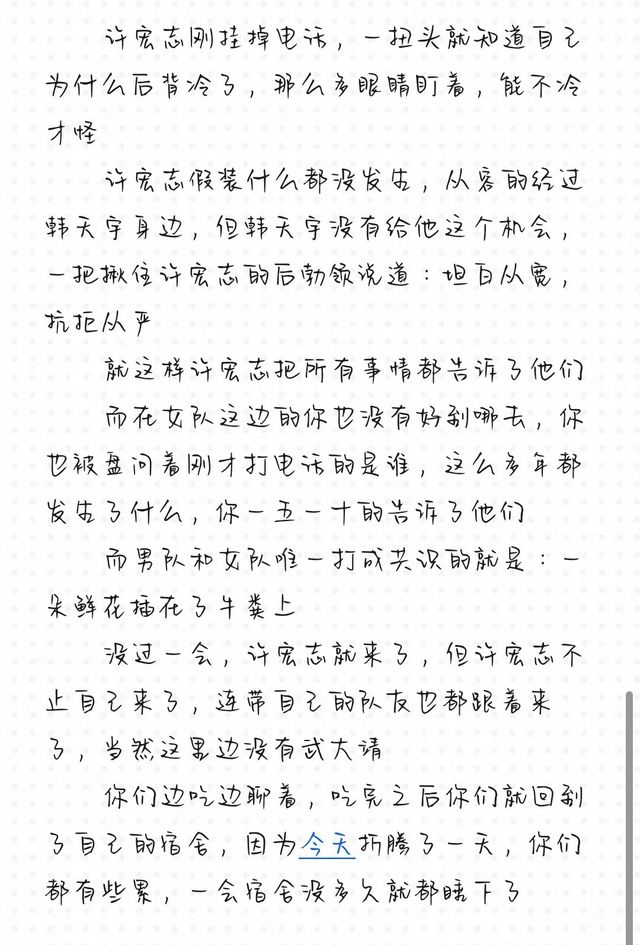 许宏志刚挂掉电话，一扭头就知道自己
为什么后背冷了，那么多眼睛盯着，能不冷
才怪
许宏志假装什么都没发生，从容的经过
韩天宇身边，但韩天宇没有给他这个机会，
一把揪住许宏志的后勃领说道：坦白从宽，
抗拒从严
就这样许宏志把所有事情都告诉了他们
而在女队这边的你也没有好到哪去，你
也被盘问着刚才打电话的是谁，这么多年都
发生了什么，你一五一十的告诉了他们
而男队和女队唯一打成共识的就是：一
朵鲜花插在了牛粪上
没过一会，许宏志就来了，但许宏志不
止自己来了，连带自己的队友也都跟着来
了，当然这里边没有武大靖
你们边吃边聊着，吃完之后你们就回到
了自己的宿舍，因为今天折腾了一天，你们
都有些累，一会宿舍没多久就都睡下了